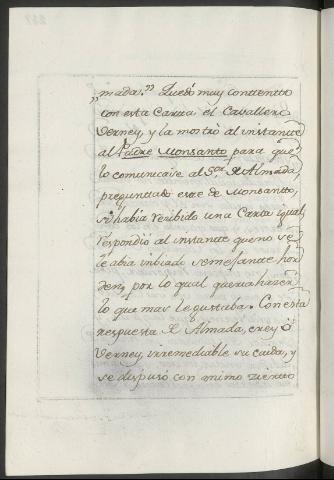 "mada." Quedó muy contento
con esta Carta el Cavallero
Verney, y la mostró al instante
al Padre Monsanto para que
lo comunicase al Sor. de Almada,
preguntado este de Monsanto,
si había recibido una Carta igual,
respondió al instante que no se
le abia inbiado semejante hor
den, por lo qual queria hazer
lo que mas le gustaba. Con esta
respuesta de Almada, creyó
Verney, irremediable su caida, y
se dispuso con animo